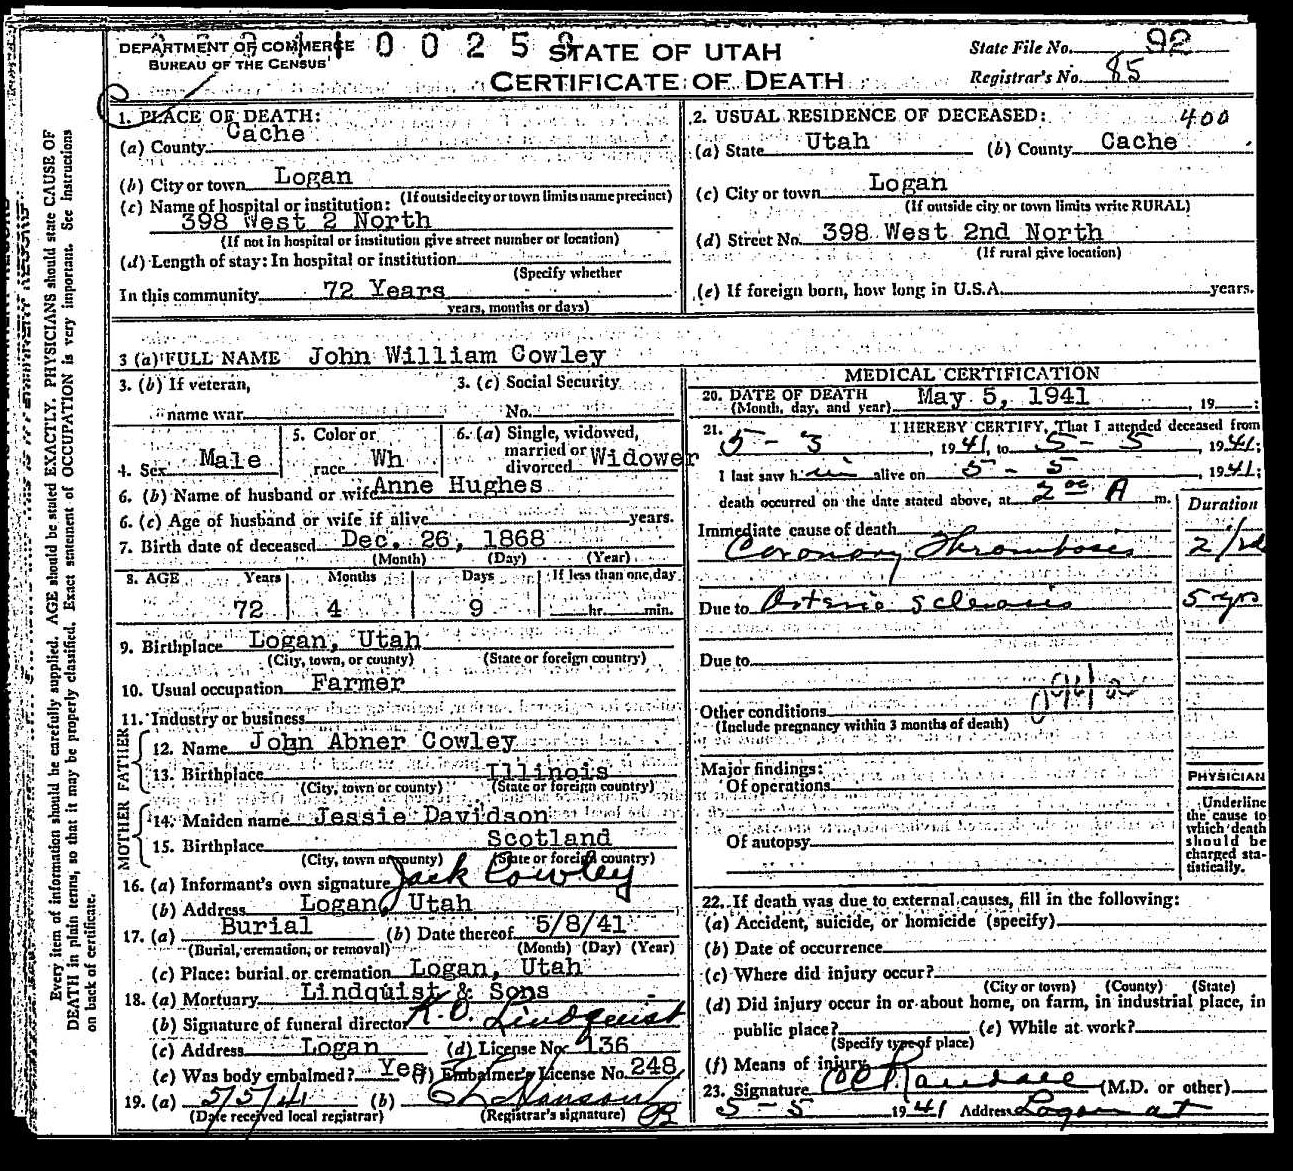 DEPARTMENT OF COMMERCE
BUREAU OF THE CENSUS
0 0 2 5
STATE OF UTAH
CERTIFICATE OF DEATH
State File No. 92
Registrar's No. 85
1. PLACE OF DEATH:
(a) County Cache
(b) City or town Logan
(If outside city or town limits name precinct)
(c) Name of hospital or institution:
398 West 2 North
(If not in hospital or institution give street number or location)
(d) Length of stay: In hospital or institution
(Specify whether
In this community 72 Years
years, months or days)
2. USUAL RESIDENCE OF DECEASED: 400
(a) State Utah (b) County Cache
(c) City or town Logan
(If outside city or town limits write RURAL)
(d) Street No. 398 West 2nd North
(If rural give location)
(e) If foreign born, how long in U.S.A. years.
3 (a) FULL NAME John William Cowley
3. (b) If veteran, name war
3. (c) Social Security No.
4. Sex Male
5. Color or race Wh
6. (a) Single, widowed, married or divorced Widower
6. (b) Name of husband or wife Anne Hughes
6. (c) Age of husband or wife if alive years.
7. Birth date of deceased Dec. 26, 1868
(Month) (Day) (Year)
8. AGE Years Months Days If less than one day
72 4 9 hr. min.
9. Birthplace Logan, Utah
(City, town, or county) (State or foreign country)
10. Usual occupation Farmer
11. Industry or business
FATHER
12. Name John Abner Cowley
13. Birthplace Illinois
(City, town or county) (State or foreign country)
MOTHER
14. Maiden name Jessie Davidson
15. Birthplace Scotland
(City, town or county) (State or foreign country)
16. (a) Informant's own signature Jack Cowley
(b) Address Logan, Utah
17. (a) Burial (b) Date thereof 5/8/41
(Burial, cremation, or removal) (Month) (Day) (Year)
(c) Place: burial or cremation Logan, Utah
18. (a) Mortuary Lindquist & Sons
(b) Signature of funeral director Lindquist
(c) Address Logan (d) License No. 136
(e) Was body embalmed? Yes (f) Embalmer's License No. 248
19. (a) 5/5/41 (b)
(Date received local registrar) (Registrar's signature)
MEDICAL CERTIFICATION
20. DATE OF DEATH
(Month, day, and year) May 5, 1941, 19 :
21. I HEREBY CERTIFY, That I attended deceased from
5 - 3, 1941, to 5 - 5, 1941;
I last saw him alive on 5 - 5 1941;
death occurred on the date stated above, at 2 00 A m.
Duration
Immediate cause of death
Coronary Thrombosis
Due to Arterio sclerosis 5 yrs
Due to
Other conditions
(Include pregnancy within 3 months of death)
Major findings:
Of operations
Of autopsy
PHYSICIAN
Underline
the cause to
which death
should be
charged sta-
tistically.
22. If death was due to external causes, fill in the following:
(a) Accident, suicide, or homicide (specify)
(b) Date of occurrence
(c) Where did injury occur?
(City or town) (County) (State)
(d) Did injury occur in or about home, on farm, in industrial place, in
public place? (e) While at work?
(Specify type of place)
(f) Means of injury
23. Signature (M.D. or other)
5 - 5 1941 Address Logan ut
Every item of information should be carefully supplied. AGE should be stated EXACTLY. PHYSICIANS should state CAUSE OF
DEATH in plain terms, so that it may be properly classified. Exact statement of OCCUPATION is very important. See instructions
on back of certificate.